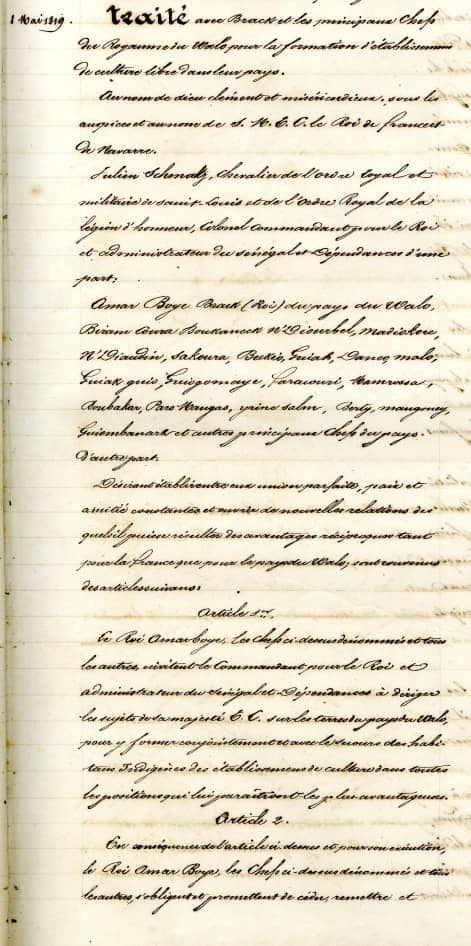 8 Mai 1819.
Traité avec Brack et les principaux Chefs
du Royaume du Walo pour la formation d'établissemens
de culture libre dans leur pays.
Au nom de dieu clément et miséricordieux, sous les
auspices et au nom de S. M. T. C. le Roi de france et
de Navarre.
Julien Schmaltz, Chevalier de l'ordre loyal et
militaire de saint Louis et de l'Ordre Royal de la
légion d'honneur, Colonel Commandant pour le Roi
et administrateur du Sénégal et Dépendances d'une
part:
Amar Boye Brack (Roi) du pays du Walo,
Biram Coura Boukaneck N' Diourbel, Madiokore,
N' Diaudin, Sakoura, Beckio, Guiak, Danco, malo,
Guiak guio, Guiogomaye, Faraouri, Hamrossa,
Boubakar, Paro Haugas, yrine Salm, Berty, maugoney,
Guiembanark et autres principaux Chefs du pays.
d'autre part.
Désirant établir entre eux union parfaite, paix et
amitié constantes et ouvrir de nouvelles relations des
quels il puisse résulter des avantages réciproques tant
pour la france que pour le pays du Walo; sont convenus
des articles suivans:
Article 1er.
Le Roi Amar boye, les Chefs ci-dessus dénommés et tous
les autres, invitent le Commandant pour le Roi et
administrateur du Sénégal et Dépendances à diriger
les sujets de sa majesté T. C. sur les terres du pays du Walo,
pour y former conjointement et avec le secours des habi-
tans Indigènes des établissemens de culture dans toutes
les positions qui lui paraîtront les plus avantageuses.
Article 2.
En conséquence de l'article ci-dessus et pour son exécution,
le Roi Amar Boye, les Chefs ci-dessus dénommés et tous
les autres, s'obligent et promettent de céder, remettre et